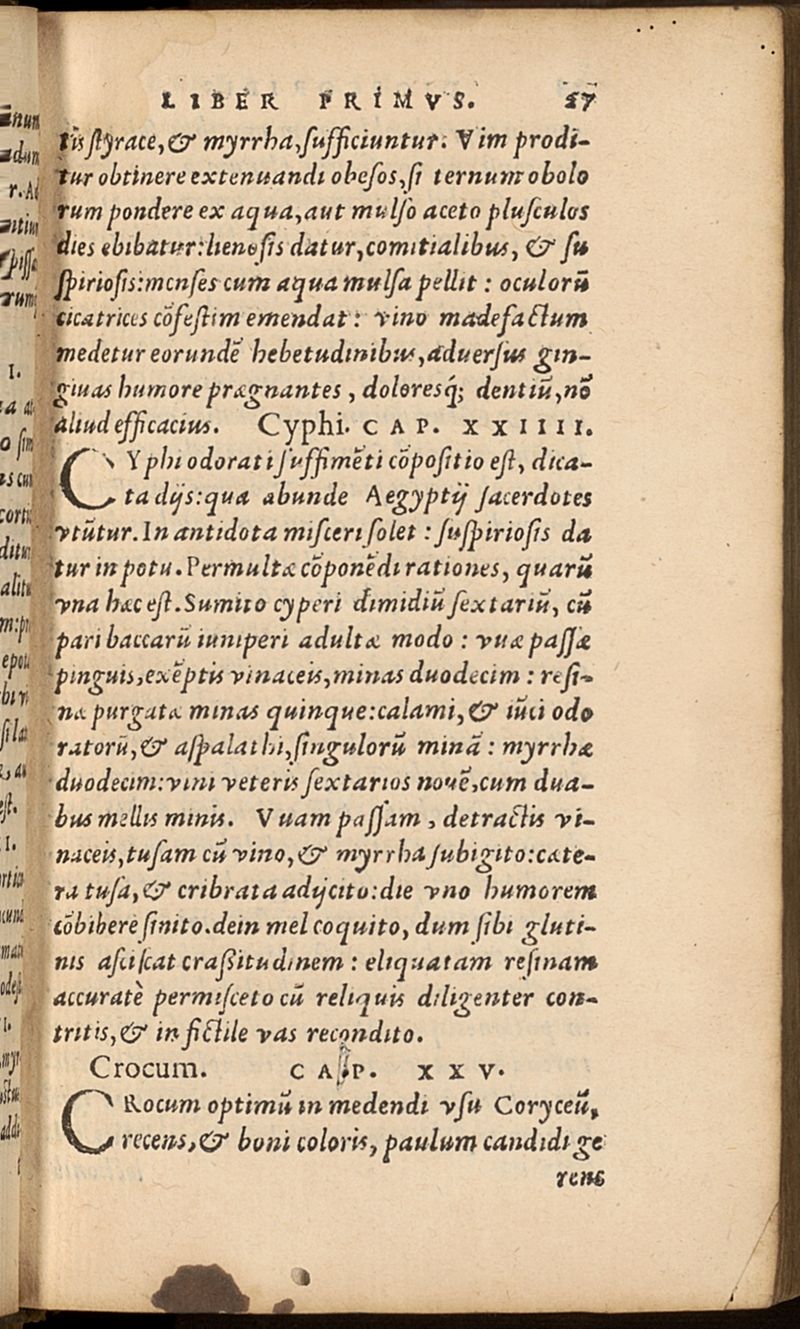 LIBER PRIMVS. 27
tis styrace, & myrrha, sufficiuntur. Vim prodi-
tur obtinere extenuandi obesos, si ternum obolo
rum pondere ex aqua, aut mulso aceto plusculos
dies ebibatur: lienosis datur, comitialibus, & su
spiriosis: menses cum aqua mulsa pellit: oculorũ
cicatrices cõfestim emendat: vino madefactum
medetur eorundẽ hebetudinibus, aduersus gin-
giuas humore prægnantes, doloresq́; dentiũ, nõ
aliud efficacius. Cyphi. CAP. XXIIII.
CYphi odorati suffimẽti cõpositio est, dica-
ta dijs: qua abunde Aegyptij sacerdotes
vtũtur. In antidota misceri solet: suspiriosis da
tur in potu. Permultæ cõponẽdi rationes, quarũ
vna hæc est. Sumito cyperi dimidiũ sextariũ, cũ
pari baccarũ iuniperi adultæ modo: vuæ passæ
pinguis, exẽptis vinaceis, minas duodecim: resi-
næ purgatæ minas quinque: calami, & iũci odo
ratorũ, & aspalathi, singulorũ minã: myrrhæ
duodecim: vini veteris sextarios nouẽ, cum dua-
bus mellis minis. Vuam passam, detractis vi-
naceis, tusam cũ vino, & myrrha subigito: cæte-
ra tusa, & cribrata adijcito: die vno humorem
cõbibere sinito. dein mel coquito, dum sibi gluti-
nis asciscat crassitudinem: eliquatam resinam
accuratè permisceto cũ reliquis diligenter con-
tritis, & in fictile vas recondito.
Crocum. CAP. XXV.
CRocum optimũ in medendi vsu Coryceũ,
recens, & boni coloris, paulum candidi ge
rens